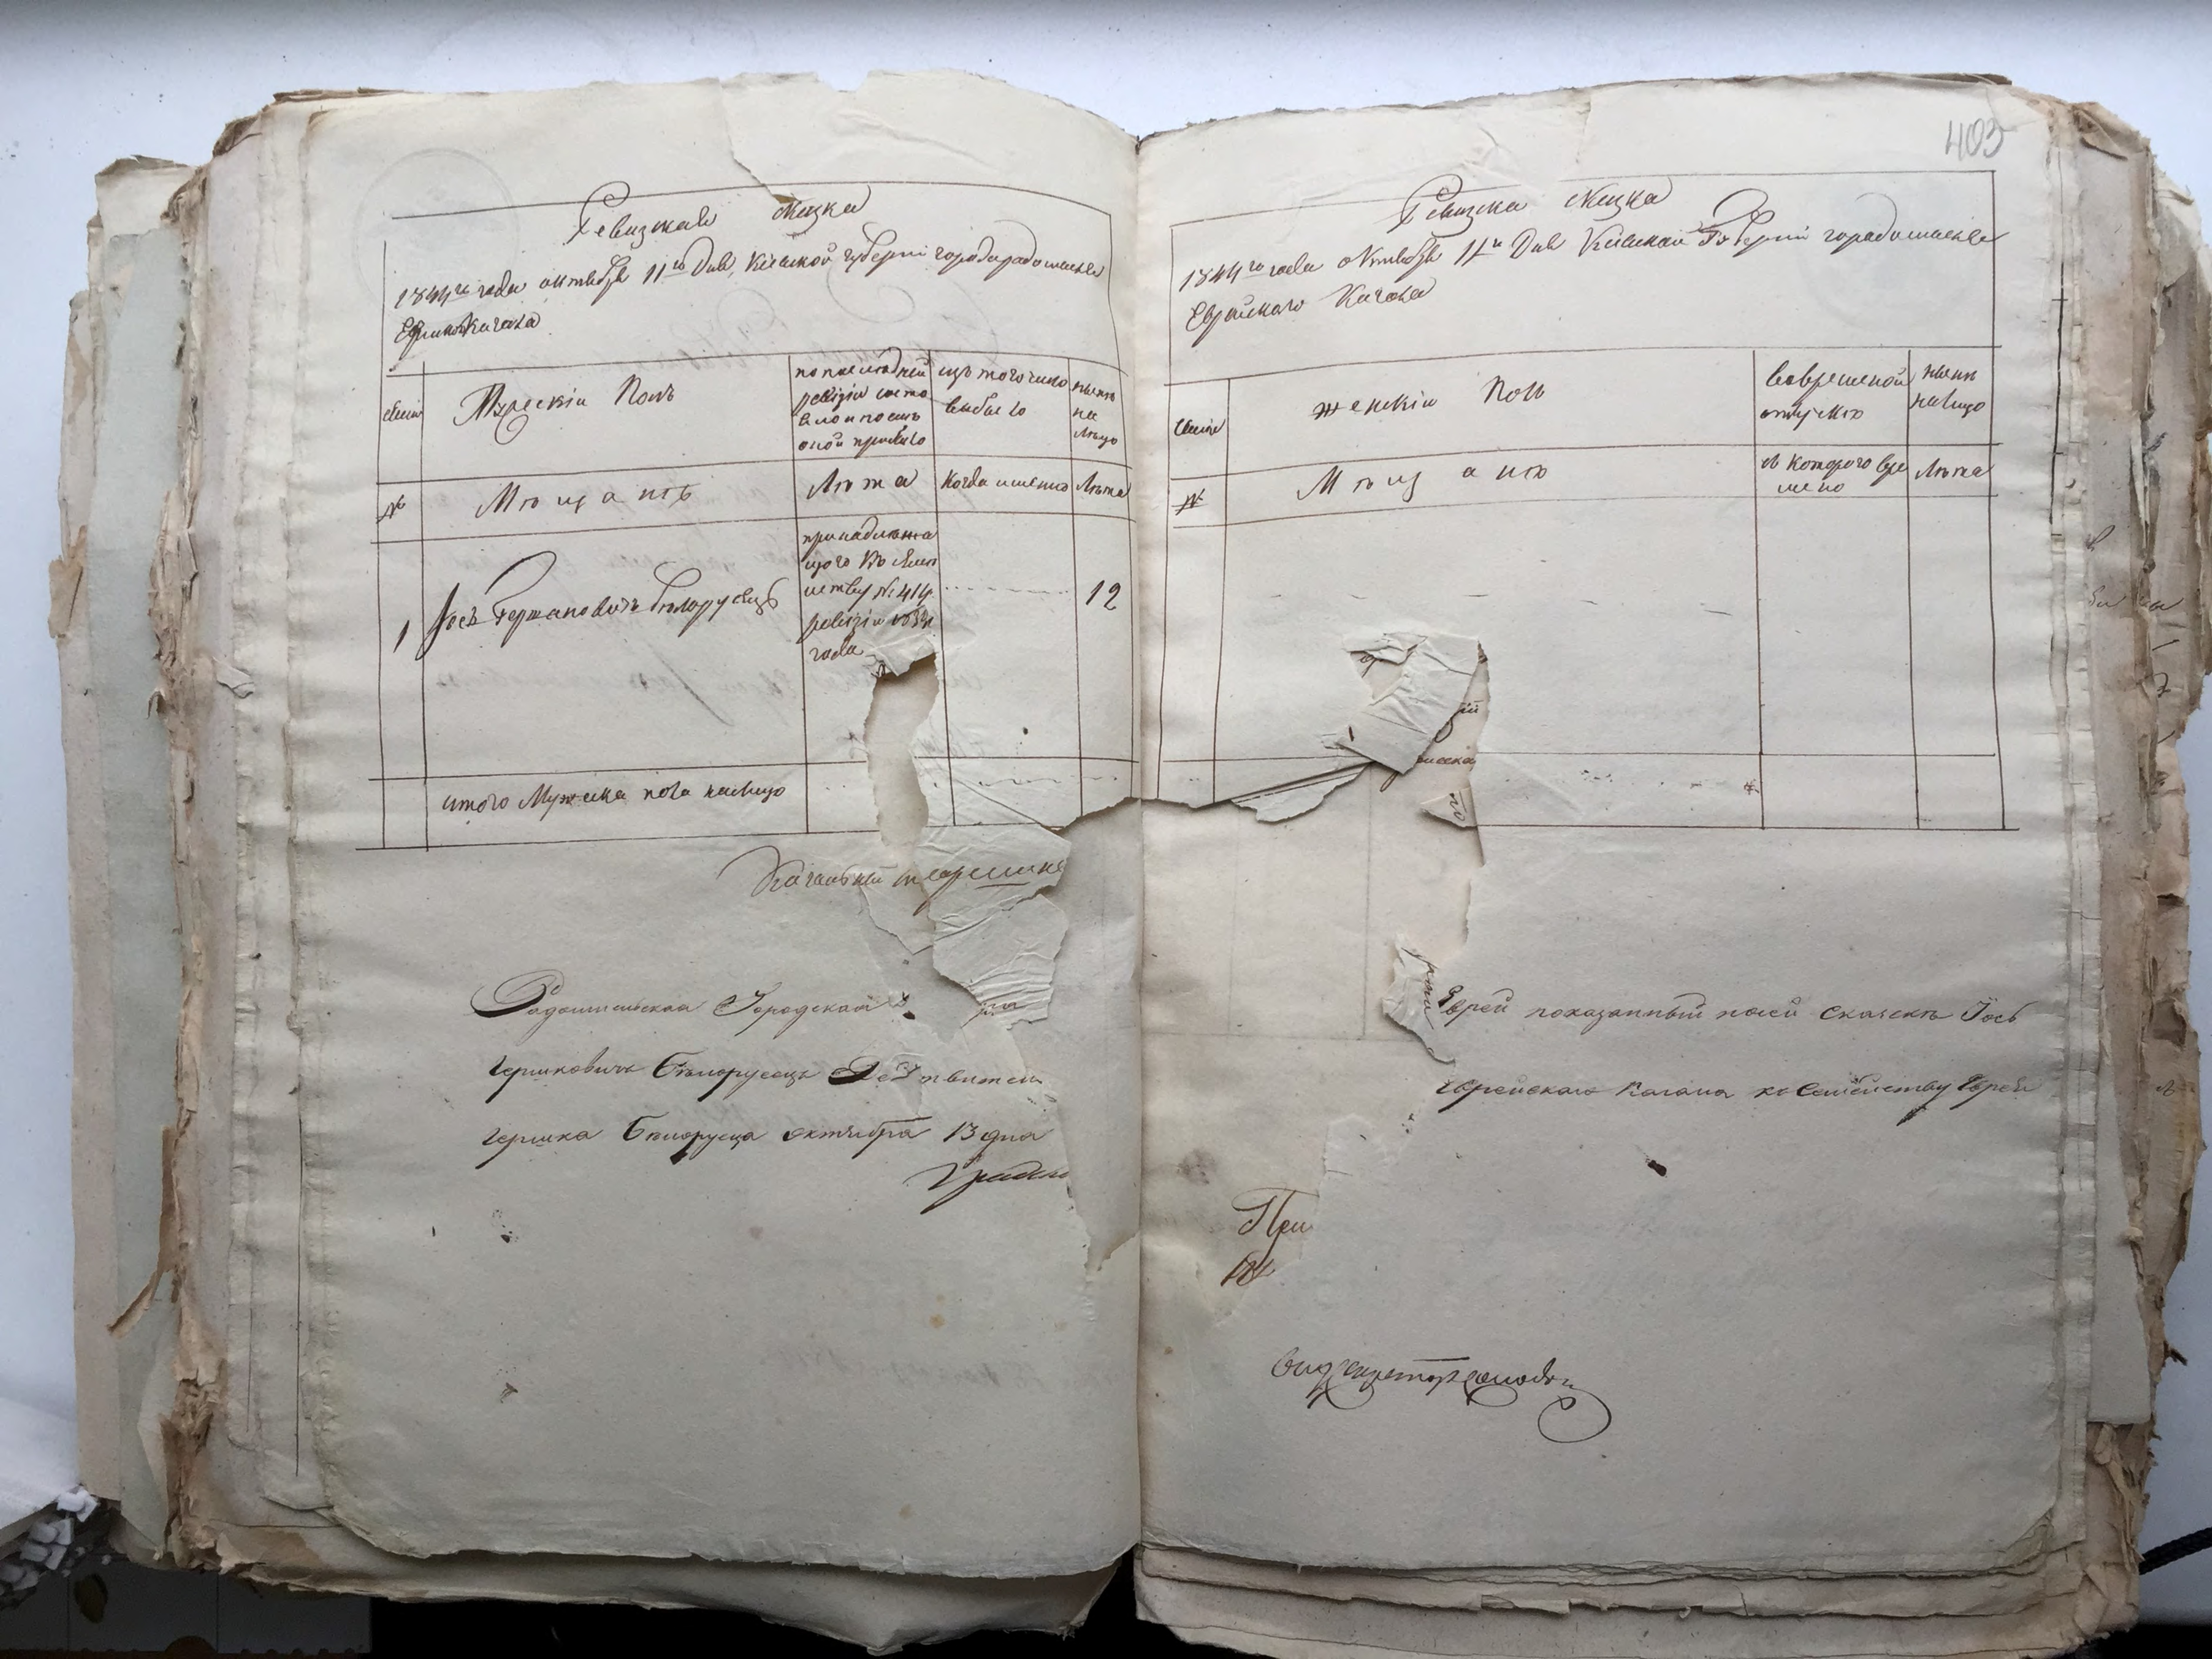 403
Ревизкая сказка
1844го года октября 11го Дня, Киевской губернii города радомысля
Еврейского Кагала
семи
Мужескiй Полъ
по последней
ревизiи состо
яло и после
оной прибыло
изъ того число
выбыло
ныне
на
лицо
№
Мещане
Лета
Когда именно
Лета
1
Iось Гершковичъ Белорусецъ
принадлежа
щого къ семе
йству № 414
ревизiи 1834
года
12
итого Мужеска пола налицо
Кагальный
Радомысльская Городская
Гершковичъ Белорусецъ Действительн
Гершка Белорусца октября 13 дня
Ревизска сказка
1844го года октября 11го Дня Киевской Губернiи города радомысля
Еврейского Кагала
семи
женскiй Полъ
во временой
отлучке
ныне
налицо
№
Мещане
съ которого вре
мено
Лета
Еврей показанный по сей сказке Iось
Еврейскаго Кагала къ Семейству Еврея
При